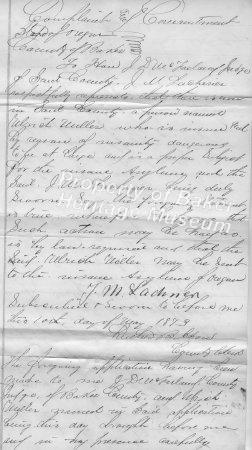 Complaint & Commitment
State of Oregon
County of Baker
To Hon J. D. McFarland Judge
of Said County. J. M. Lachner
respectfully represents that there is now
in Said County a person named
Ulrich Miller who is insane and
By reason of insanity dangerous
to be at large and is a proper subject
for the insane Asylum and the
Said J. M. being duly
Sworn the
is true
Such action may be had
is by law required and that the
Said Ulrich Miller may be sent
to the insane Asylum of Oregon
J. M. Lachner
Subscribed & Sworn to before me
this day of May 1873
County Clerk
The foregoing application having been
made to me J. D. McFarland County
Judge of Baker County and Ulrich
Miller named in Said application
being this day brought before me
and in my presence carefully
Property of Baker
Heritage Museum